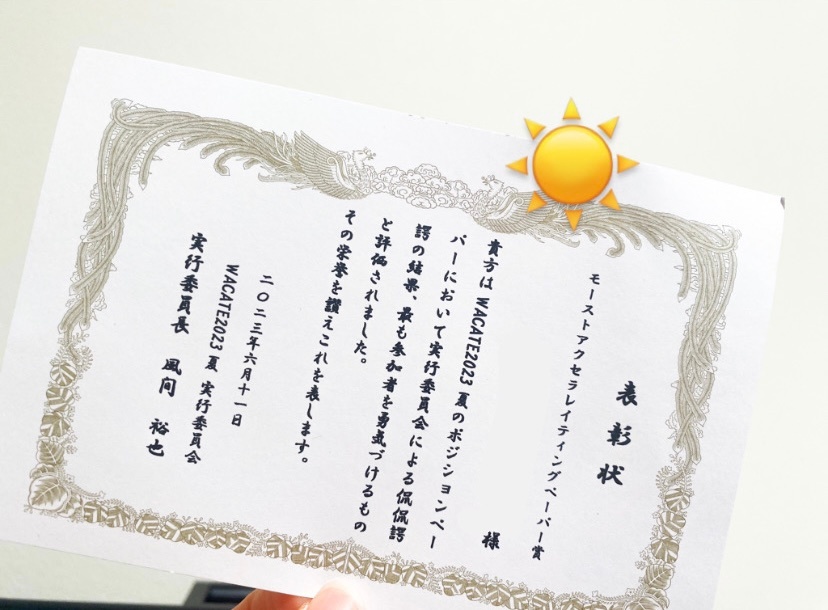 表彰状
モーストアクセラレイティングペーパー賞
様
貴方は WACATE2023 夏のポジションペー
パーにおいて実行委員会による侃侃諤
諤の結果、最も参加者を勇気づけるもの
と評価されました。
その栄誉を讃えこれを表します。
二〇二三年六月十一日
WACATE2023 夏 実行委員会
実行委員長 風間 裕也